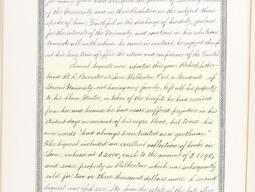 of the University, and in their Resolution on the subject, thus
spoke of him: Faithful in the discharge of his duty, zealous
for the interests of the University, and courteous in his relations
towards all with whom he came in contact, he enjoyed through
out his long term of office the esteem and confidence of the Trustees.
Several bequests were reported this year. Robert Suther-
land B.A. Barrister at Law, Walkerton, Ont., a Graduate of
Queen's University, not having any family, left all his property
to his Alma Mater, in token of the benefits he had received
from her and because he had never suffered prejudice in his
student days on account of his negro blood, but to use his
own words "had always been treated as a gentleman."
The bequest included an excellent collection of books on
Law, insured at $2000, cash to the amount of $
and some property in Walkerton which was subsequently
sold for two or three thousand dollars more. A second
bequest was of $ from the estate of the late